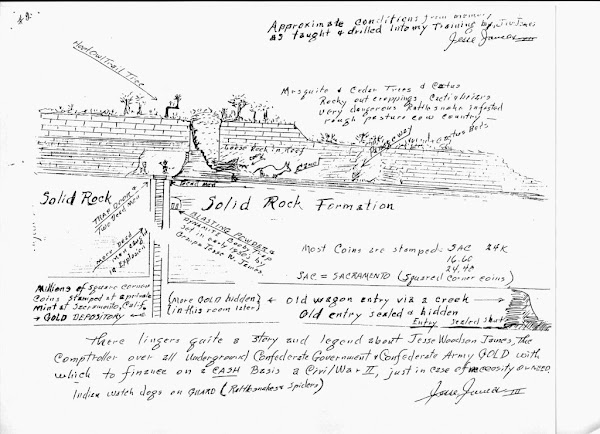 Approximate conditions from memory
as taught & drilled into my training by J.W. James
Jesse James III
Hoot Owl Trail Tree
Mesquite & Cedar Trees & Cactus
Rocky out croppings Cacti & briars
very dangerous Rattlesnake infested
rough pasture cow country —
Loose Rock in Roof
Cactus Beds
Dead Men
Solid Rock
Trap Door &
Two Dead Men
Solid Rock Formation
More Dead
men caught
in Explosion
BLASTING POWDER &
Dynamite Booby trap
set in early 1880s by
Gramps Jesse W. James
Most Coins are stamped: SAC 24K
16.60
24.40
SAC = SACRAMENTO (Squared corner coins)
Millions of square corner
Coins stamped at a private
Mint at Sacramento, Calif.
→ GOLD DEPOSITORY ←
(More GOLD hidden)
(in this room later)
← old wagon entry via a creek
Old entry sealed & hidden
Entry sealed shut
There lingers quite a story and legend about Jesse Woodson James, The
Comptroller over all Underground Confederate Government & Confederate Army GOLD with
which to finance on a CASH Basis a Civil War II, just in case of necessity
Indian watch dogs on GUARD (Rattlesnakes & Spiders)
Jesse James III